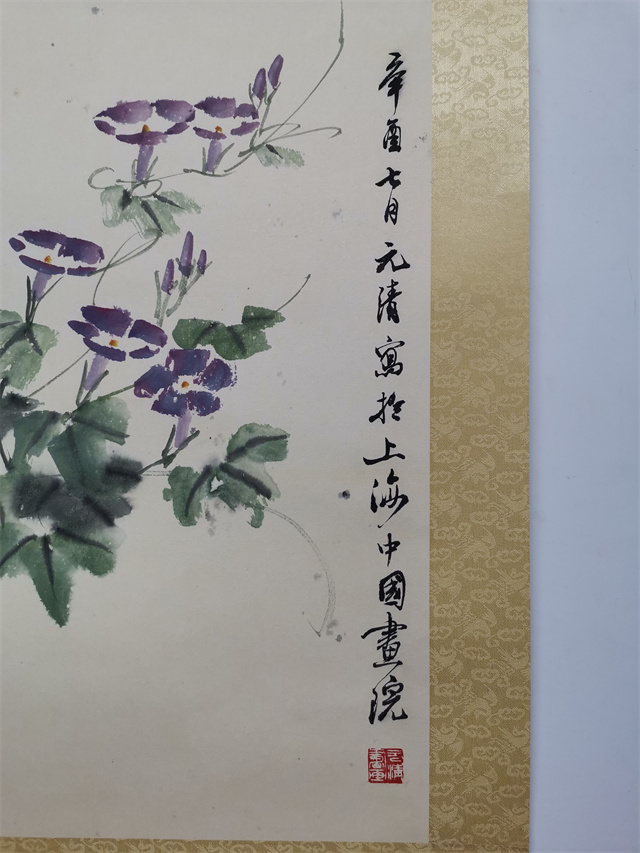 辛酉七月元清寫於上海中國畫院